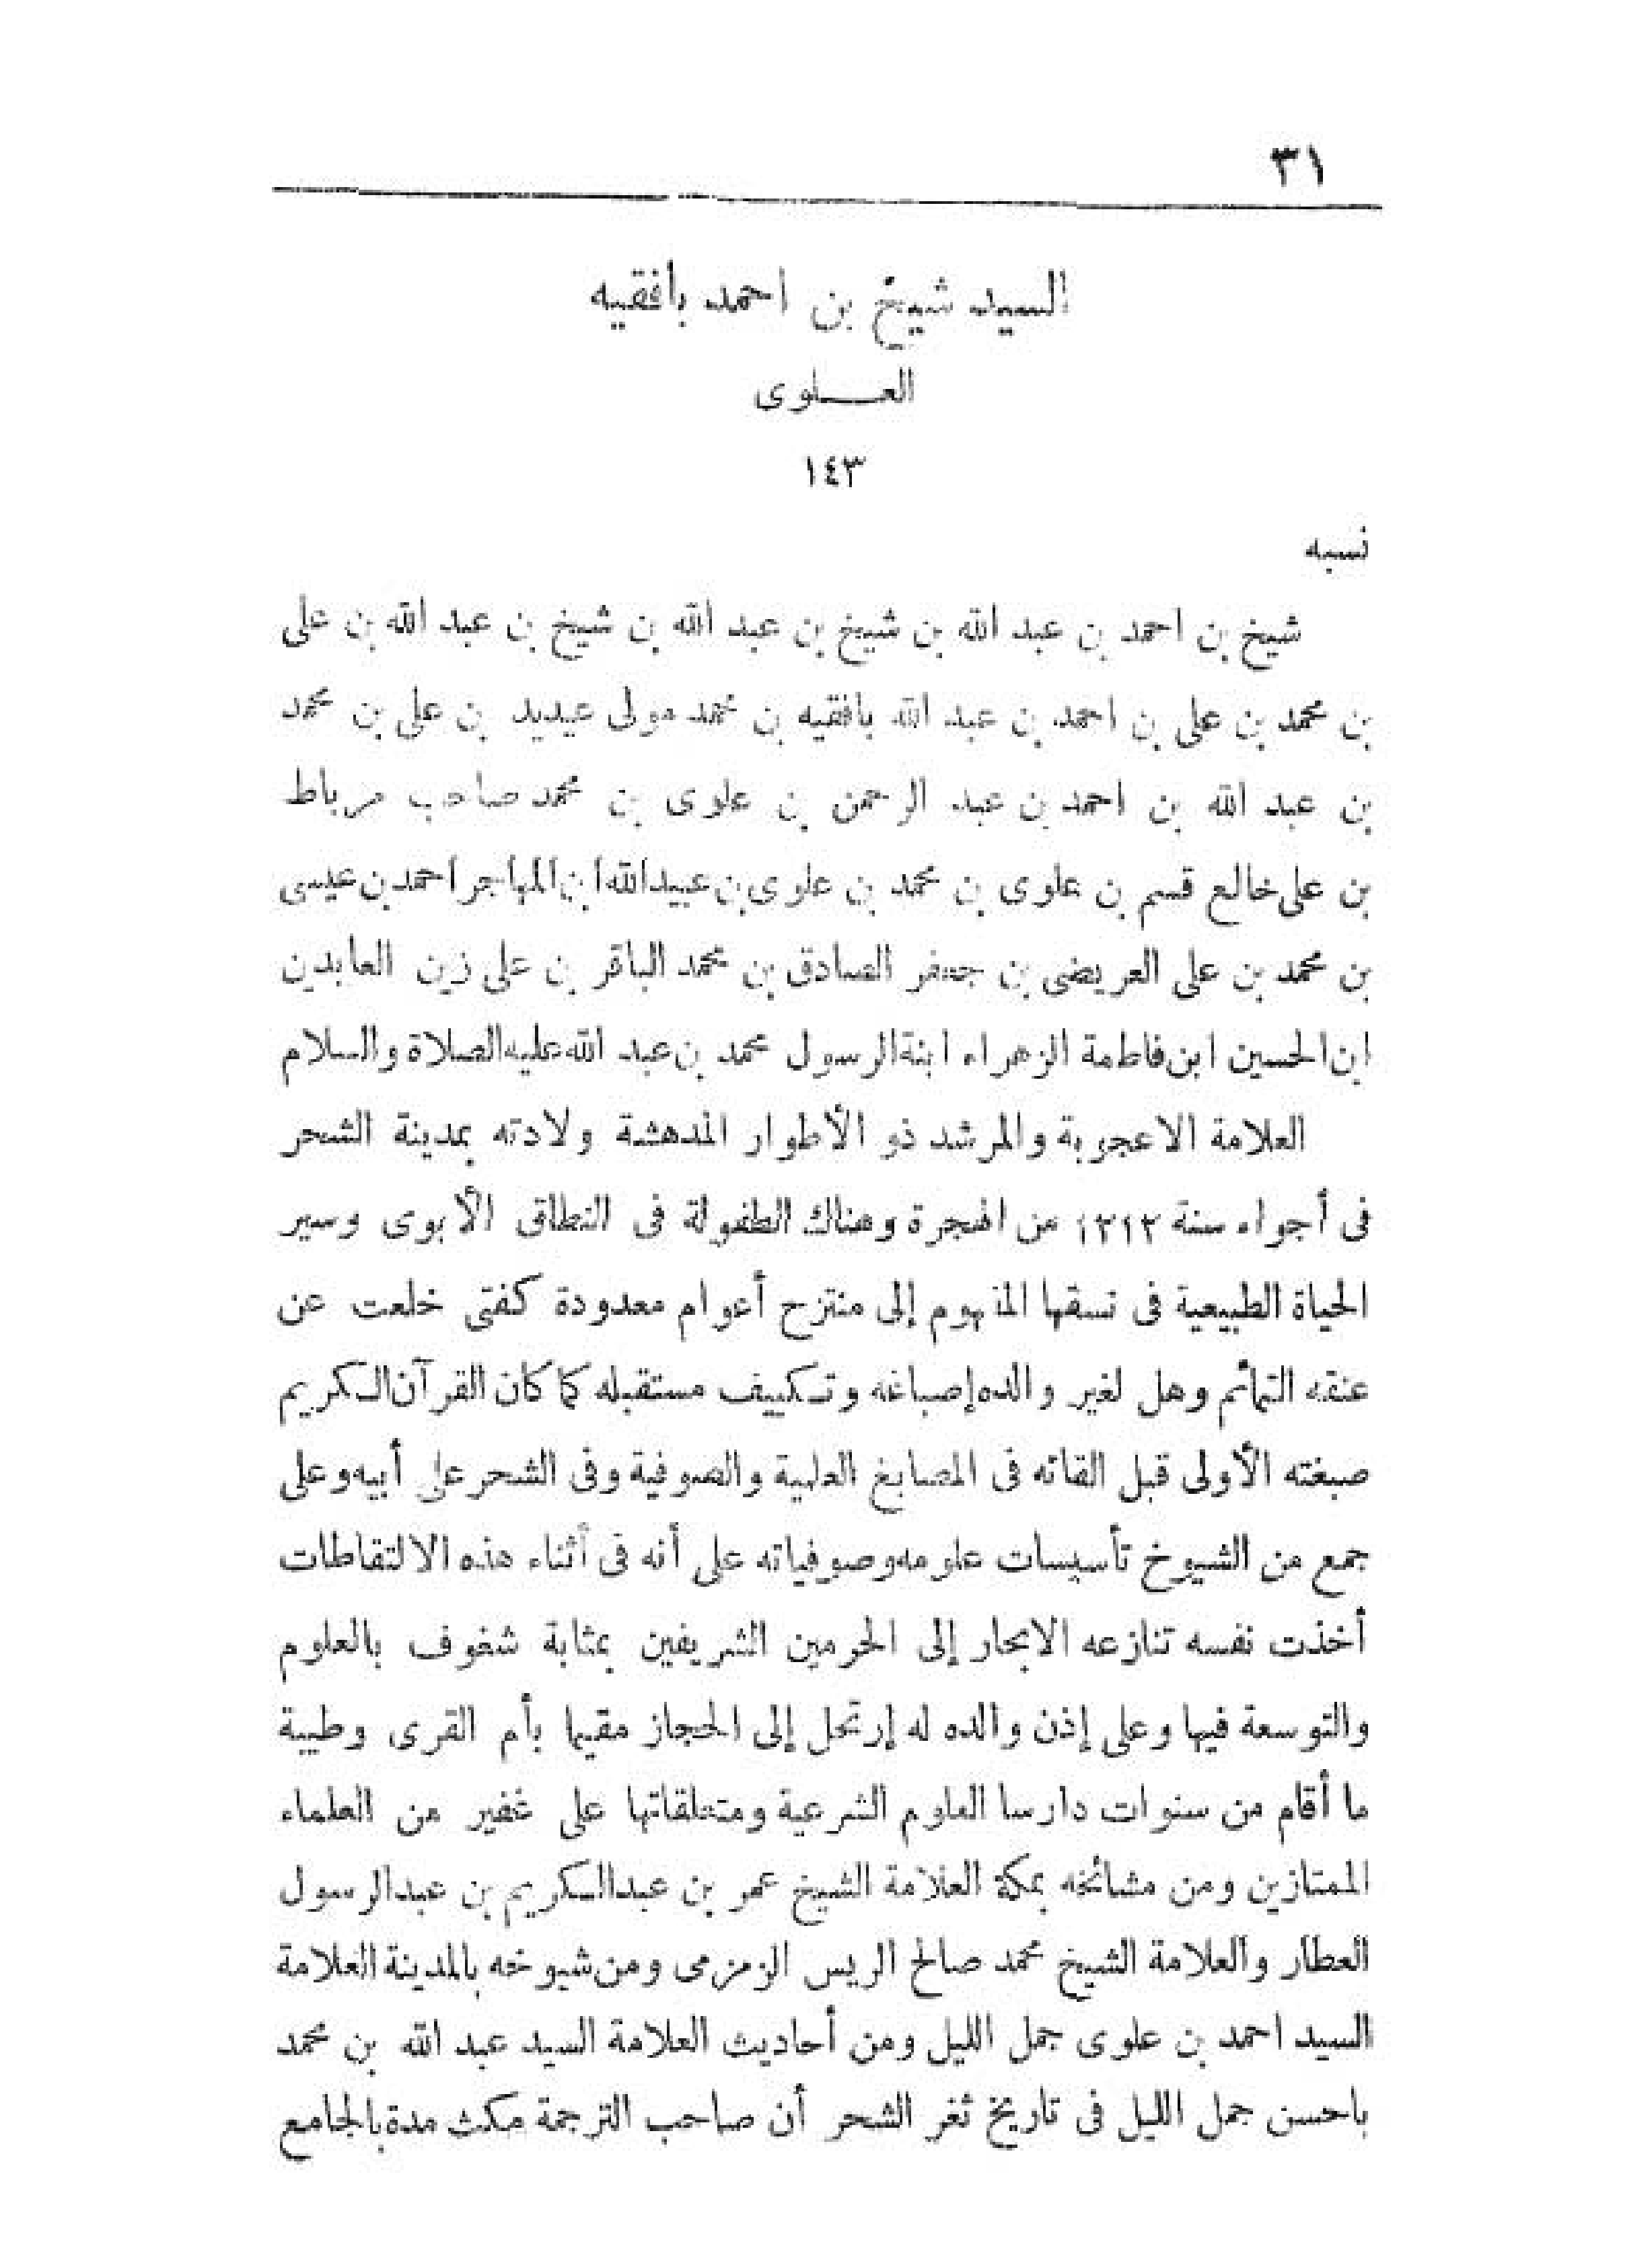 ٣١
السيد شيخ بن احمد بافقيه
العـــلوى
١٤٣
نسبه
شيخ بن احمد بن عبد الله بن شيخ بن عبد الله بن شيخ بن عبد الله بن على
بن محمد بن على بن احمد بن عبد الله بافقيه بن محمد مولى عيديد بن على بن محمد
بن عبد الله بن احمد بن عبد الرحمن بن علوى بن محمد صاحب مرباط
بن على خالع قسم بن علوى بن محمد بن علوى بن عبيد الله ابن المهاجر احمد بن عيسى
بن محمد بن على العريضى بن جعفر الصادق بن محمد الباقر بن على زين العابدين
ابن الحسين ابن فاطمة الزهراء ابنة الرسول محمد بن عبد الله عليه الصلاة والسلام
العلامة الاعجوبة والمرشد ذو الأطوار المدهشة ولادته بمدينة الشحر
فى أجواء سنة ١٢١٢ من الهجرة وهناك الطفولة فى النطاق الأبوى وسير
الحياة الطبيعية فى نسقها المفهوم إلى منتزح أعوام معدودة كفتى خلعت عن
عنقه التمائم وهل لغير والده إصباغه وتكييف مستقبله كما كان القرآن الكريم
صبغته الأولى قبل القائه فى المصابغ العلمية والصوفية وفى الشحر على أبيه وعلى
جمع من الشيوخ تأسيسات علومه وصوفياته على أنه فى أثناء هذه الالتقاطات
أخذت نفسه تنازعه الابحار إلى الحرمين الشريفين بمثابة شغوف بالعلوم
والتوسعة فيها وعلى إذن والده له إرتحل إلى الحجاز مقيما بأم القرى وطيبة
ما أقام من سنوات دارسا العلوم الشرعية ومتعلقاتها على غفير من العلماء
الممتازين ومن مشائخه بمكة العلامة الشيخ عمر بن عبد الكريم بن عبد الرسول
العطار والعلامة الشيخ محمد صالح الريس الزمزمى ومن شيوخه بالمدينة العلامة
السيد احمد بن علوى جمل الليل ومن أحاديث العلامة السيد عبد الله بن محمد
باحسن جمل الليل فى تاريخ ثغر الشحر أن صاحب الترجمة مكث مدة بالجامع